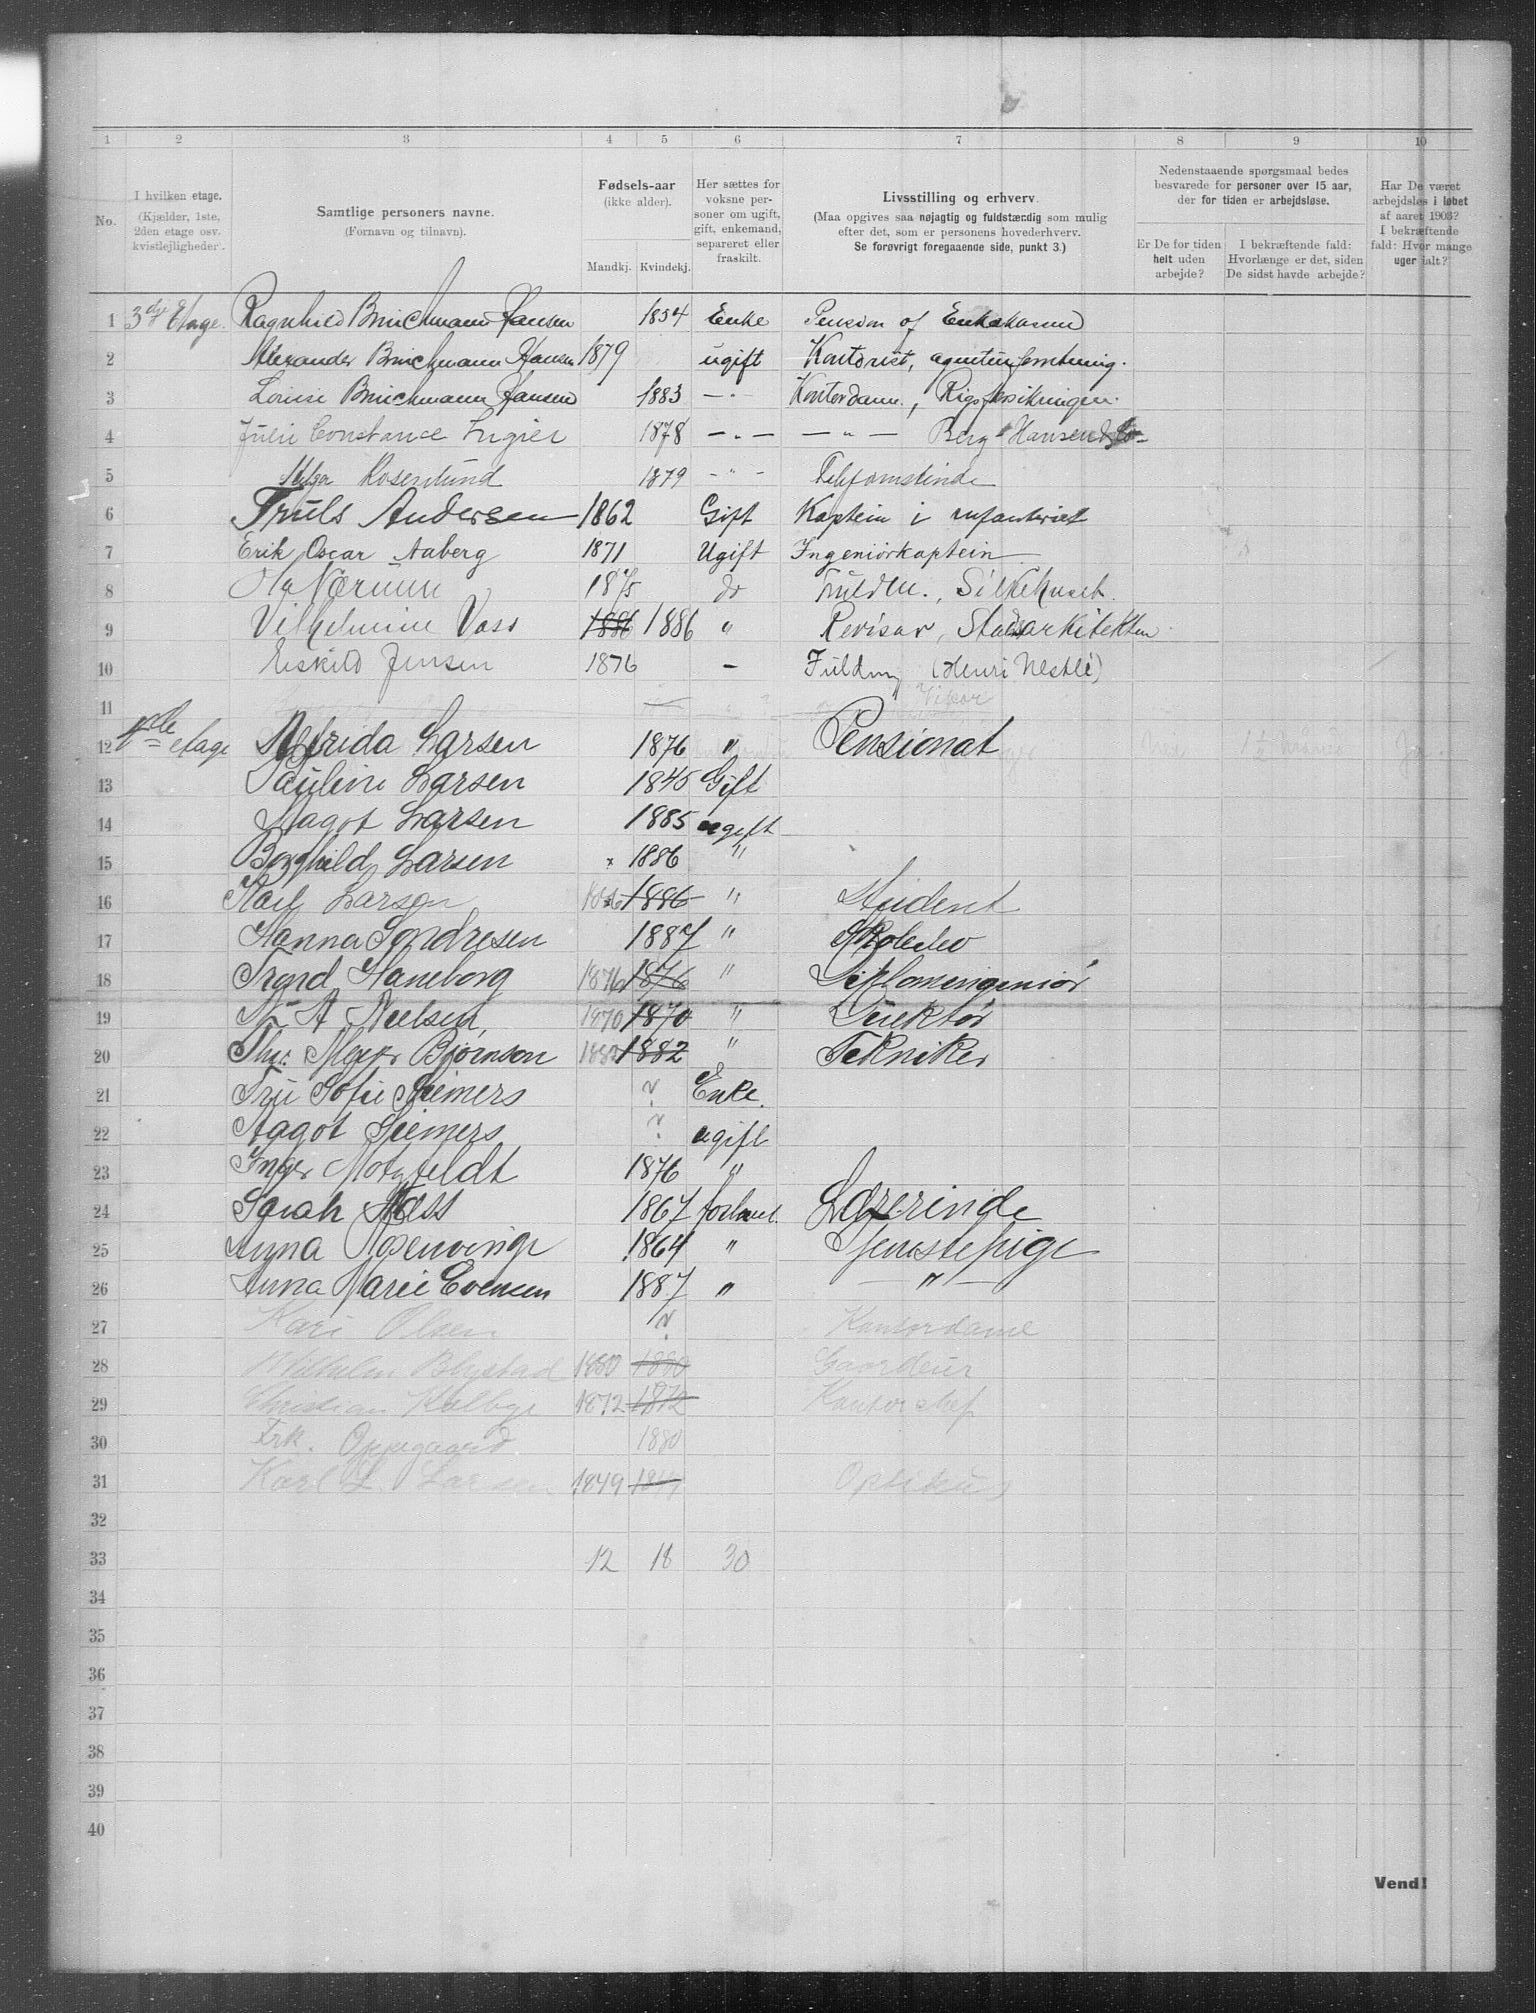 1 2 3 4 5 6 7 8 9 10
No.
I hvilken etage.
(Kjælder, 1ste,
2den etage osv.
kvistlejligheder).
Samtlige personers navne.
(Fornavn og tilnavn).
Fødsels-aar
(ikke alder).
Mandkj. Kvindekj.
Her sættes for
voksne per-
soner om ugift,
gift, enkemand,
separeret eller
fraskilt.
Livsstilling og erhverv.
(Maa opgives saa nøjagtig og fuldstændig som mulig
efter det, som er personens hovederhverv.
Se forøvrigt foregaaende side, punkt 3.)
Nedenstaaende spørgsmaal bedes
besvarede for personer over 15 aar,
der for tiden er arbejdsløse.
Er De for tiden
helt uden
arbejde?
I bekræftende fald:
Hvorlænge er det, siden
De sidst havde arbejde?
Har De været
arbejdsløs i løbet
af aaret 1903?
I bekræftende
fald: Hvor mange
uger ialt?
1 3die Etage. Ragnhild Bruchmann Hansen 1834 Enke Pension af Enkekassen
2 Alexander Bruchmann Hansen 1879 ugift Kontorist, agenturforretning.
3 Louise Bruchmann Hansen 1883 — " — Kontordame, Rigsforsikringen.
4 Julie Constance Engier 1878 — " — — " — Berg Hansen & Co
5 Helga Rosenlund 1879 — " — Telefonistinde
6 Truls Andersen 1862 Gift Kaptein i infanteriet
7 Erik Oscar Aaberg 1871 Ugift Ingeniørkaptein
8 Ola Nærum 1875 do Fuldm., Silkehuset.
9 Vilhelmine Voss 1886 1886 " Revisor, Stadsarkitekten
10 Eiskild Jensen 1876 — Fuldm (Henri Nestlé)
11
12 4de etage Alfrida Larsen 1876 " Pensionat
13 Pauline Larsen 1845 Gift
14 Magot Larsen 1885 ugift
15 Borghild Larsen 1886 "
16 Karl Larsen 1886 1886 " Student
17 Hanna Sondresen 1887 " Skoleelev
18 Trond Haneborg 1876 1876 " Diplomingeniør
19 N. A Nielsen 1870 1870 " Direktør
20 Thv. Meyer Bjørnson 1882 1882 " Tekniker
21 Fru Sofie Siemers ? Enke.
22 Aagot Siemers ? ugift
23 Inger Motzfeldt 1876 "
24 Sarah Næss 1867 forlovet. Lærerinde
25 Anna Rosenvinge 1864 " Tjenestepige
26 Anna Marie Evensen 1887 " — " —
27 Kari Olsen ? Kontordame
28 Wilhelm Blystad 1880 1880 Gaardeier
29 Christian Kolbye 1872 1872 Kontorchef
30 Frk. Oppegaard 1880
31 Karl L. Larsen 1849 1849 Optikus
32
33 12 18 30
34
35
36
37
38
39
40
Vend!